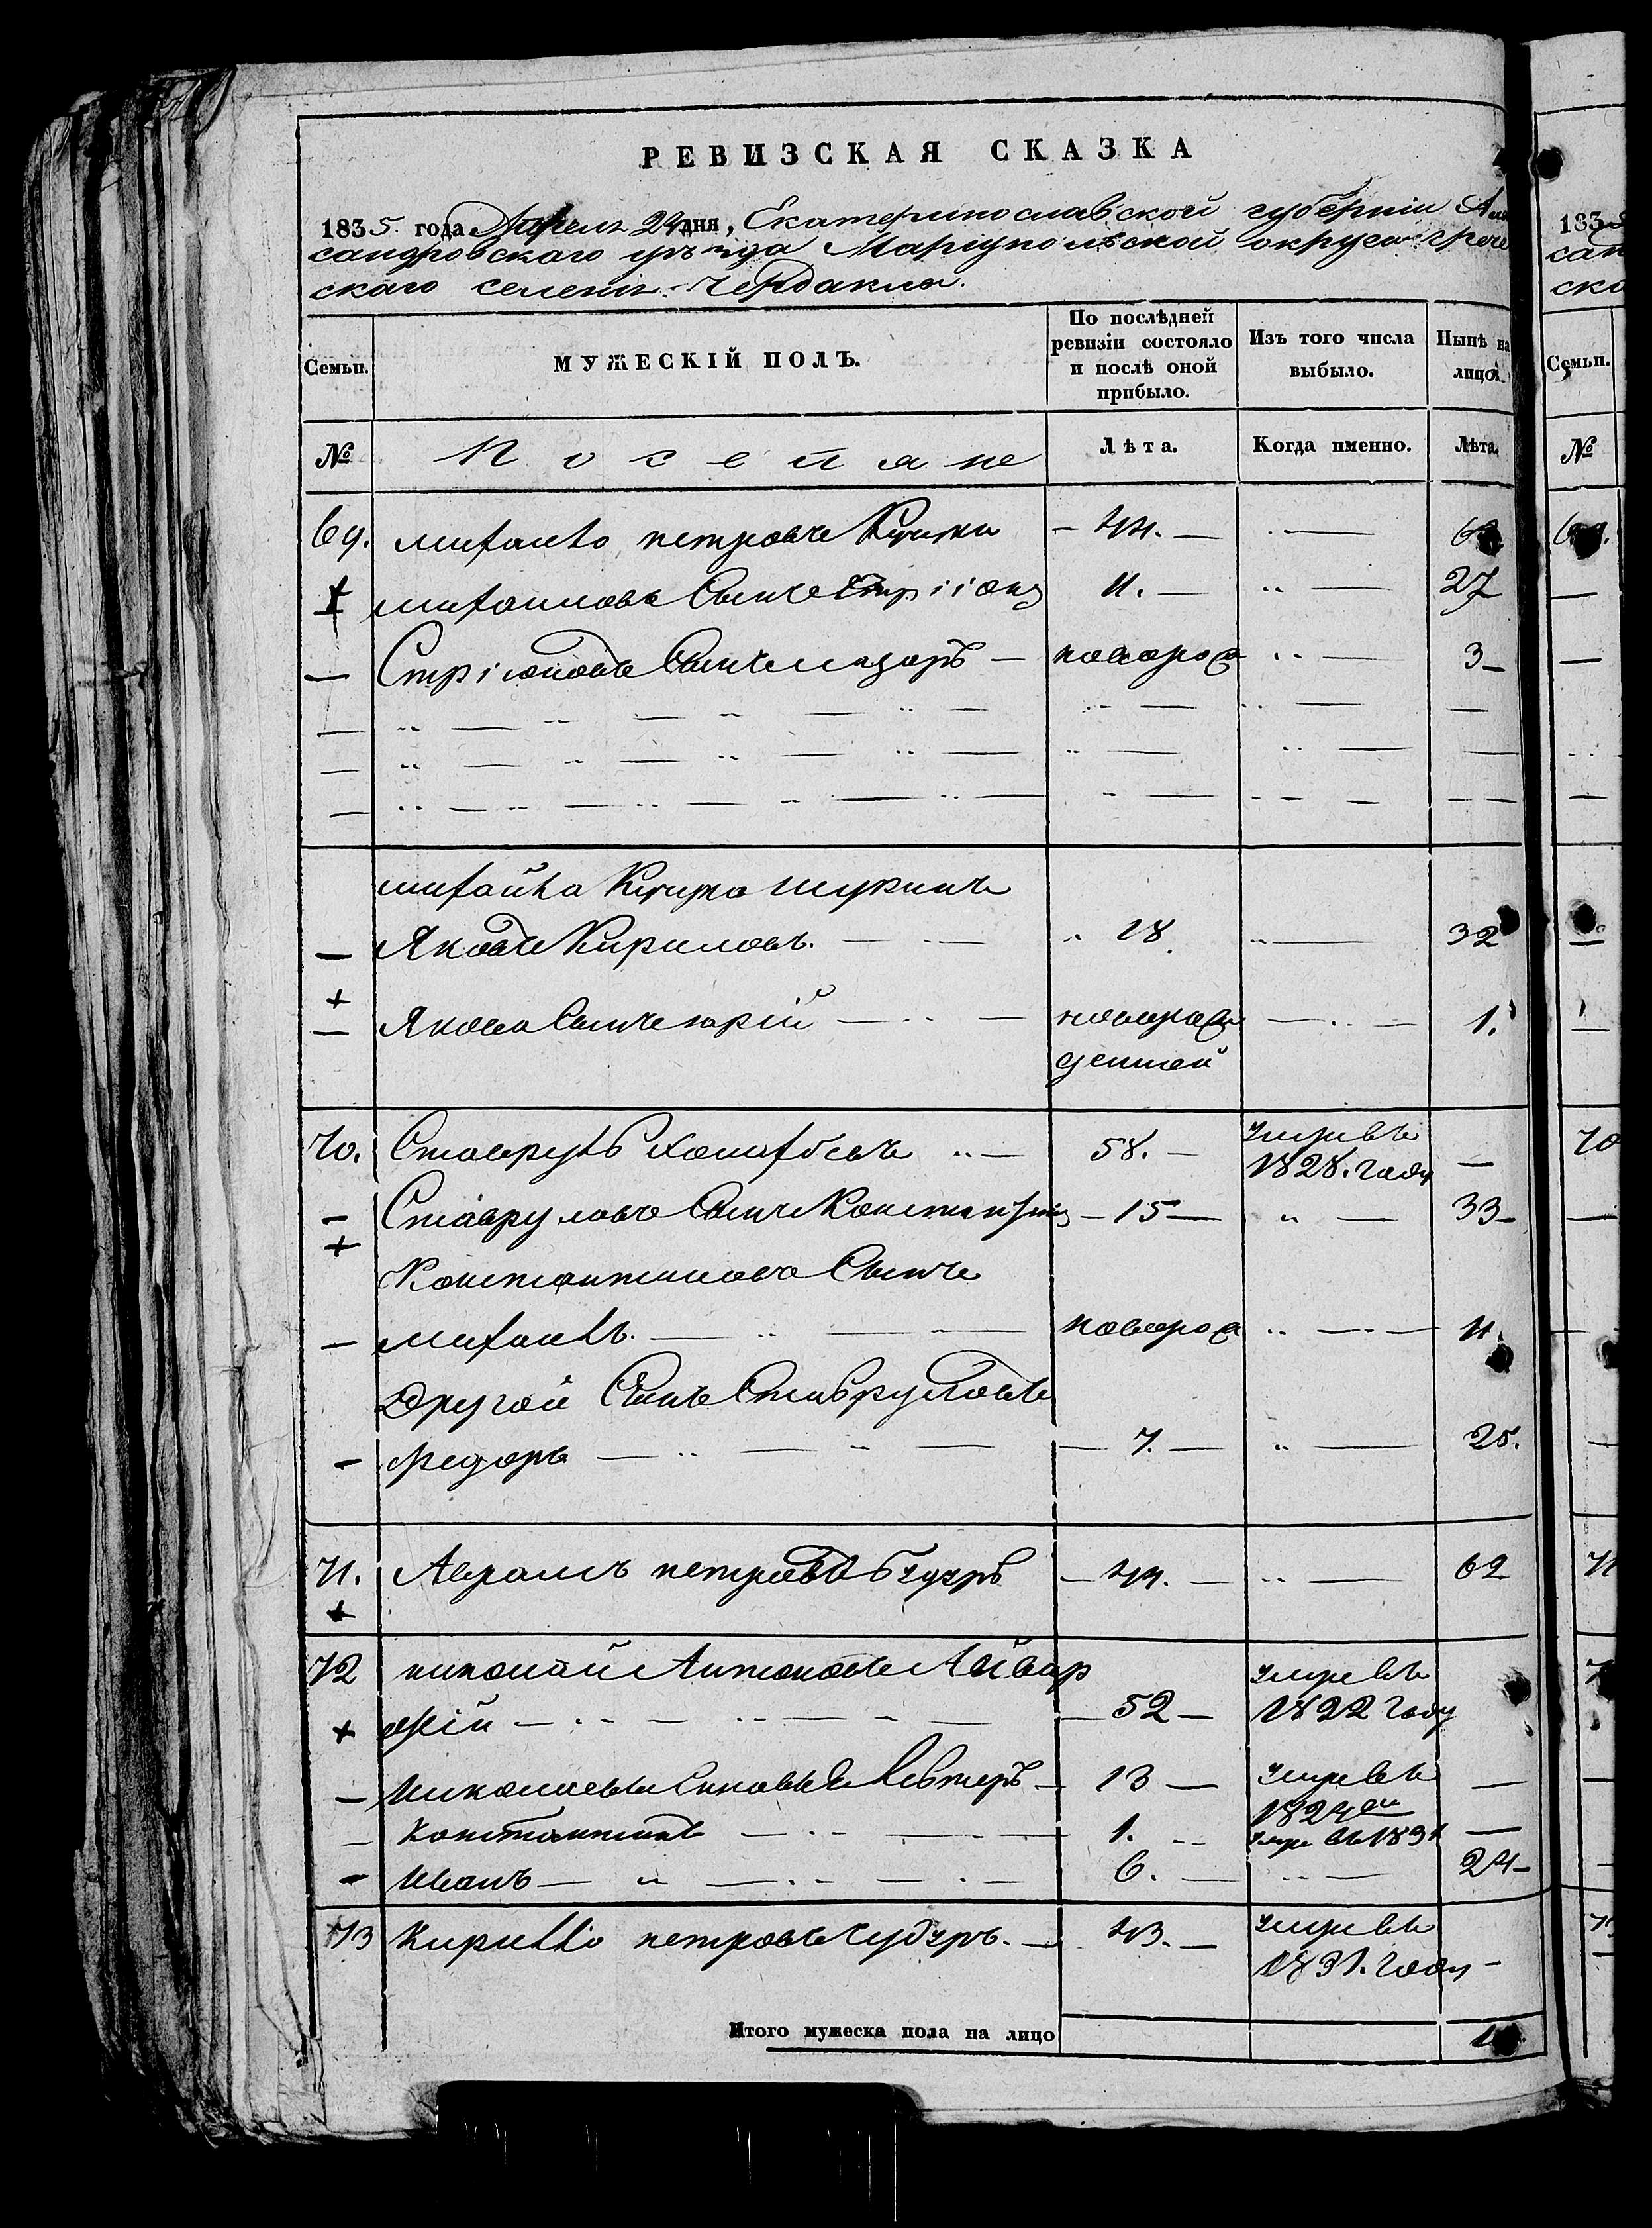 РЕВИЗСКАЯ СКАЗКА
1835. года Апрель 24 дня, Екатеринославской губернии Але
сандровского уѣзда Маріупольской округи грече
скаго селенія Чердакла.
Семьи.
МУЖЕСКІЙ ПОЛЪ.
По послѣдней ревизіи состояло и послѣ оной прибыло.
Изъ того числа выбыло.
Нынѣ на лицо.
№
Поселяне
Лѣта.
Когда именно.
Лѣта.
69. михаило петровъ 44.
михаиловъ Сынъ 11. 27
Стріоновъ Сынъ лазоръ новорож 3
михайла шуринъ
Яковъ Кириловъ. 18 32
Якова Сынъ юрій новорож 1.
денной
70. Ставрулъ 58. умре въ
1828. году
Ставруловъ Сынъ Константинъ 15 33
Константиновъ Сынъ
михаилъ. новорож 11.
Другой Сынъ Ставруловъ
федоръ 7. 25.
71. Аврамъ петровъ 44. 62
72 николай Антоновъ Айвар
жій 52 умре въ
1822 году
Николаевы Сыновья 13 умре въ
1824
Константинъ 1. умре въ 1831
Иванъ 6. 24
73 Кирилло петровъ Чубуръ. 43. умре въ
1831. году
Итого мужеска пола на лицо
183
сан
ско
Семьи.
№
70
71